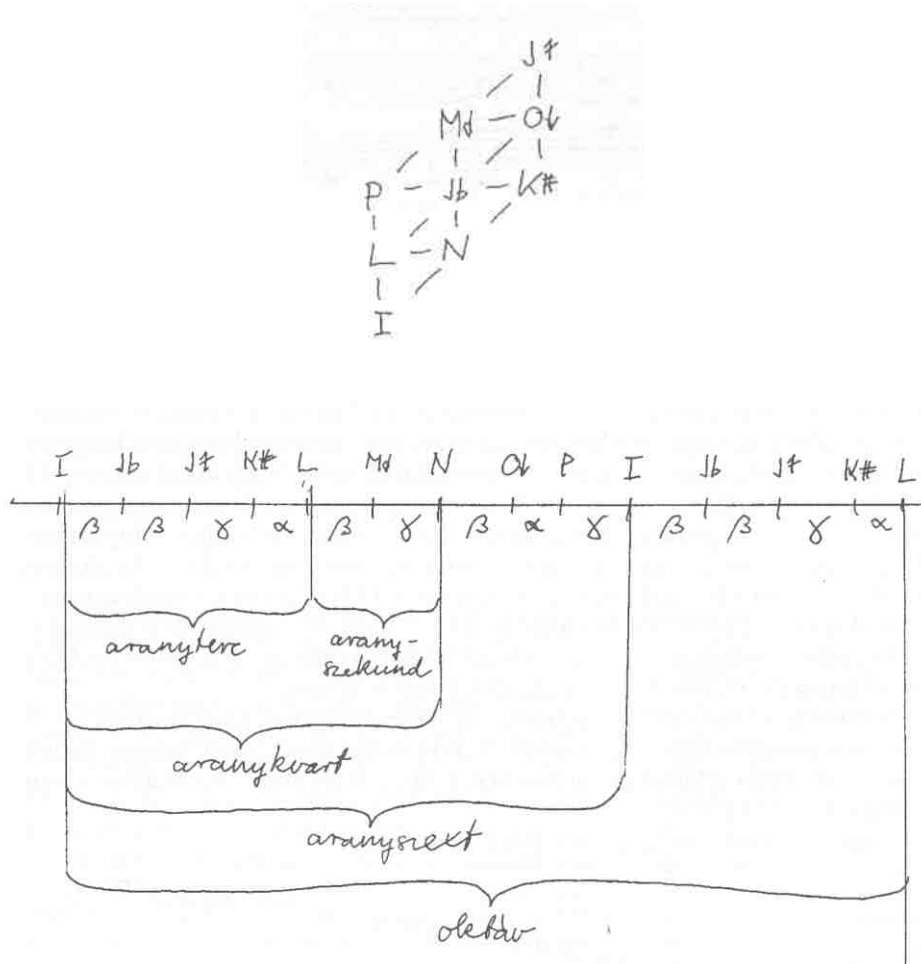 J‡
Md – Od
P – Jb – K#
L – N
I
I Jb J‡ K# L Md N Od P I Jb J‡ K# L
β β γ α β γ β α γ β β γ α
aranyterc
arany-
szekund
aranykvart
aranyszext
oktáv